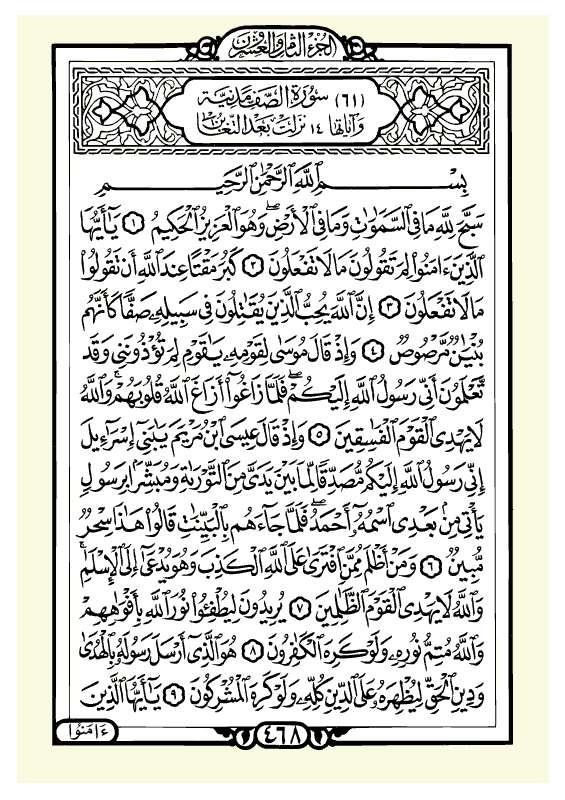 الجزء الثامن والعشرون
(٦١) سورة الصف مدنية
وآياتها ١٤ نزلت بعد التغابن
بِسْمِ ٱللَّهِ ٱلرَّحْمَٰنِ ٱلرَّحِيمِ
سَبَّحَ لِلَّهِ مَا فِى ٱلسَّمَٰوَٰتِ وَمَا فِى ٱلْأَرْضِ ۖ وَهُوَ ٱلْعَزِيزُ ٱلْحَكِيمُ ١ يَٰٓأَيُّهَا
ٱلَّذِينَ ءَامَنُوا۟ لِمَ تَقُولُونَ مَا لَا تَفْعَلُونَ ٢ كَبُرَ مَقْتًا عِندَ ٱللَّهِ أَن تَقُولُوا۟
مَا لَا تَفْعَلُونَ ٣ إِنَّ ٱللَّهَ يُحِبُّ ٱلَّذِينَ يُقَٰتِلُونَ فِى سَبِيلِهِۦ صَفًّا كَأَنَّهُم
بُنْيَٰنٌ مَّرْصُوصٌ ٤ وَإِذْ قَالَ مُوسَىٰ لِقَوْمِهِۦ يَٰقَوْمِ لِمَ تُؤْذُونَنِى وَقَد
تَّعْلَمُونَ أَنِّى رَسُولُ ٱللَّهِ إِلَيْكُمْ ۖ فَلَمَّا زَاغُوٓا۟ أَزَاغَ ٱللَّهُ قُلُوبَهُمْ ۚ وَٱللَّهُ
لَا يَهْدِى ٱلْقَوْمَ ٱلْفَٰسِقِينَ ٥ وَإِذْ قَالَ عِيسَى ٱبْنُ مَرْيَمَ يَٰبَنِىٓ إِسْرَٰٓءِيلَ
إِنِّى رَسُولُ ٱللَّهِ إِلَيْكُم مُّصَدِّقًا لِّمَا بَيْنَ يَدَىَّ مِنَ ٱلتَّوْرَىٰةِ وَمُبَشِّرًۢا بِرَسُولٍ
يَأْتِى مِنۢ بَعْدِى ٱسْمُهُۥٓ أَحْمَدُ ۖ فَلَمَّا جَآءَهُم بِٱلْبَيِّنَٰتِ قَالُوا۟ هَٰذَا سِحْرٌ
مُّبِينٌ ٦ وَمَنْ أَظْلَمُ مِمَّنِ ٱفْتَرَىٰ عَلَى ٱللَّهِ ٱلْكَذِبَ وَهُوَ يُدْعَىٰٓ إِلَى ٱلْإِسْلَٰمِ ۚ
وَٱللَّهُ لَا يَهْدِى ٱلْقَوْمَ ٱلظَّٰلِمِينَ ٧ يُرِيدُونَ لِيُطْفِـُٔوا۟ نُورَ ٱللَّهِ بِأَفْوَٰهِهِمْ
وَٱللَّهُ مُتِمُّ نُورِهِۦ وَلَوْ كَرِهَ ٱلْكَٰفِرُونَ ٨ هُوَ ٱلَّذِىٓ أَرْسَلَ رَسُولَهُۥ بِٱلْهُدَىٰ
وَدِينِ ٱلْحَقِّ لِيُظْهِرَهُۥ عَلَى ٱلدِّينِ كُلِّهِۦ وَلَوْ كَرِهَ ٱلْمُشْرِكُونَ ٩ يَٰٓأَيُّهَا ٱلَّذِينَ
ءَامَنُوا۟
٤٦٨